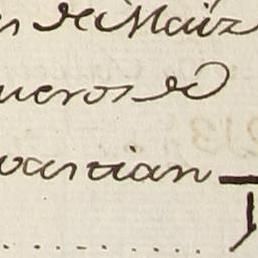 s de Maiz
ueros de
vastian